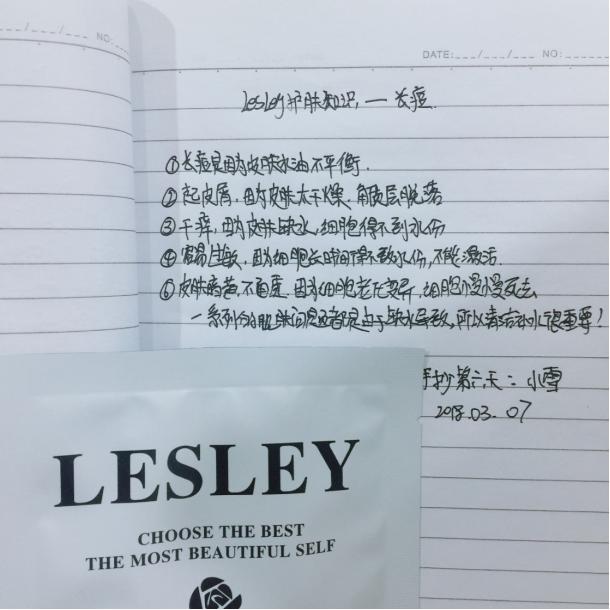 NO:
DATE: / / NO:
Lesley护肤知识,一长痘.
①长痘是因为皮肤水油不平衡.
②起皮屑,因为皮肤太干燥.角质层脱落
③干痒,因为皮肤缺水,细胞得不到水份
④容易过敏,因为细胞长时间得不到水份,不能激活.
⑤皮肤暗黄,不宣亮.因为细胞老化变异,细胞慢慢死去
一系列的肌肤问题都是由于缺水导致,所以清洁补水很重要!
手抄第六天:小雪
2018.03.07
LESLEY
CHOOSE THE BEST
THE MOST BEAUTIFUL SELF